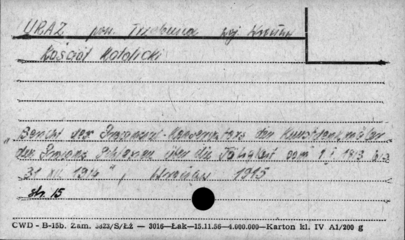 URAZ pow. Trzebnica woj. Wrocław
Kościół Katolicki
"Bericht des Provinzial-Konservators der Kunstdenkmäler
der Provinz Schlesien über die Tätigkeit vom 1 I 1913 bis
31 XII 1914", Breslau 1915
str 15
CWD - B-15b. Zam. 3823/S/ŁŻ — 3016—Łak—15.11.56—4.000.000—Karton kl. IV A1/200 g